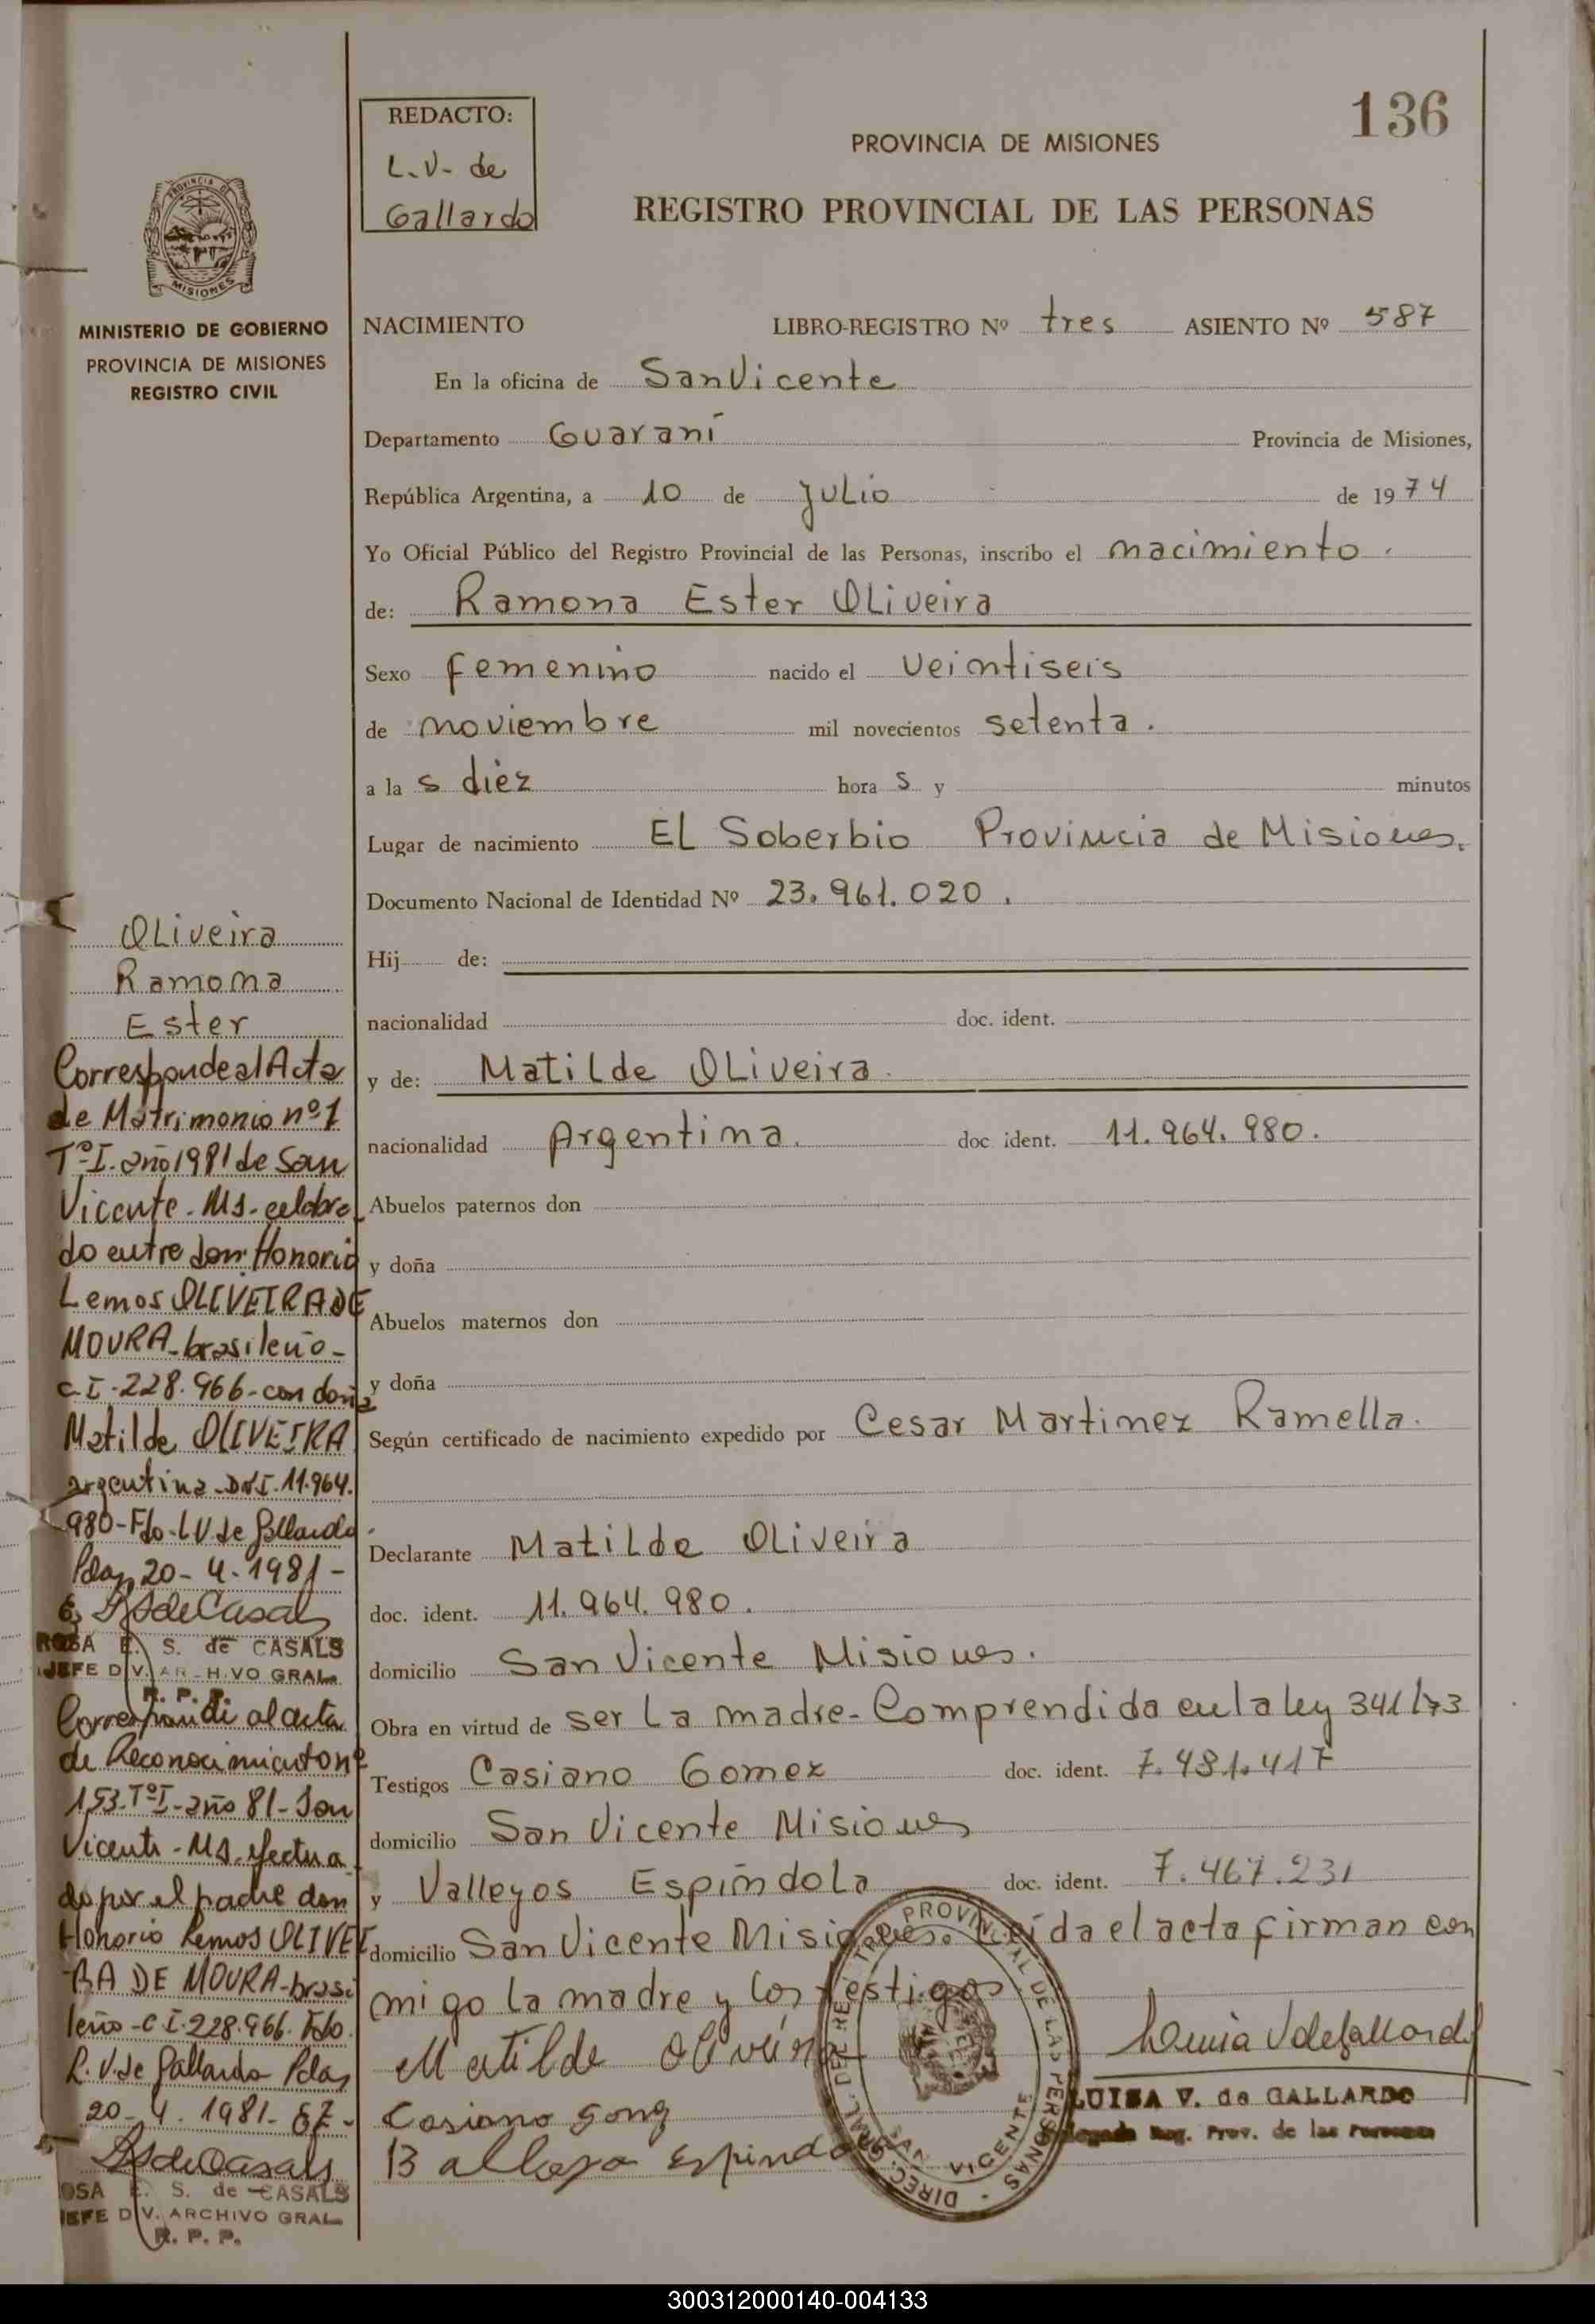 136
REDACTO:
L.V- de
Gallardo
PROVINCIA DE MISIONES
REGISTRO PROVINCIAL DE LAS PERSONAS
PROVINCIA DE
MISIONES
MINISTERIO DE GOBIERNO
PROVINCIA DE MISIONES
REGISTRO CIVIL
NACIMIENTO LIBRO-REGISTRO Nº tres ASIENTO Nº 587
En la oficina de San Vicente
Departamento Guaraní Provincia de Misiones,
República Argentina, a 10 de Julio de 1974
Yo Oficial Público del Registro Provincial de las Personas, inscribo el nacimiento.
de: Ramona Ester Oliveira
Sexo femenino nacido el veintiseis
de noviembre mil novecientos setenta.
a la s diez hora s y minutos
Lugar de nacimiento El Soberbio Provincia de Misiones.
Documento Nacional de Identidad Nº 23.961.020.
Hij de:
nacionalidad doc. ident.
y de: Matilde Oliveira
nacionalidad Argentina. doc ident. 11.964.980.
Abuelos paternos don
y doña
Abuelos maternos don
y doña
Según certificado de nacimiento expedido por Cesar Martinez Ramella.
Declarante Matilde Oliveira
doc. ident. 11.964.980.
domicilio San Vicente Misiones.
Obra en virtud de ser la madre- Comprendida en la ley 341/73
Testigos Casiano Gomez doc. ident. 7.481.417
domicilio San Vicente Misiones
y Valleyos Espíndola doc. ident. 7.467.231
domicilio San Vicente Misiones. Leída el acta firman con
migo la madre y los testigos
Matilde Oliveira
Casiano Gomez
Ballejo Espindola
LUISA V. de GALLARDO
Delegada Reg. Prov. de las Personas
SAN VICENTE
Oliveira
Ramona
Ester
Corresponde al Acta
de Matrimonio nº 1
Tº I. año 1981 de San
Vicente - Ms - celebra
do entre don Honorio
Lemos OLIVEIRA DE
MOURA - brasileño -
C.I - 228.966 - con doña
Matilde OLIVEIRA
argentina - DNI. 11.964.
980 - Fdo - L V de Gallardo
Pdas, 20 - 4 - 1981 -
RSdeCasals
ROSA E. S. de CASALS
JEFE DIV. ARCHIVO GRAL.
R. P. P.
Corresponde al acta
de Reconocimiento nº
153 - Tº I - año 81 - San
Vicente - Ms. efectua
do por el padre don
Honorio Lemos OLIVEI
RA DE MOURA - brasi
leño - C I - 228.966. Fdo.
L. V. de Gallardo Pdas,
20 - 4. 1981 -
RSdeCasals
ROSA E. S. de CASALS
JEFE DIV. ARCHIVO GRAL.
R. P. P.
300312000140-004133